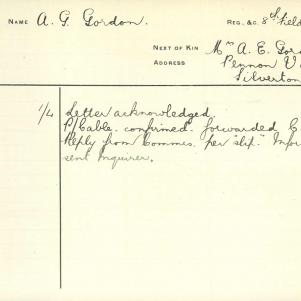 NAME A. G. Gordon. REG. &C. 8th Field
NEXT OF KIN Mrs A. E. Gord
ADDRESS Pennon V
Silverton
1/4 Letter acknowledged.
P/Cable. confirmed. forwarded C
Reply from Commis. per "slip." Infor
sent Inquirer.